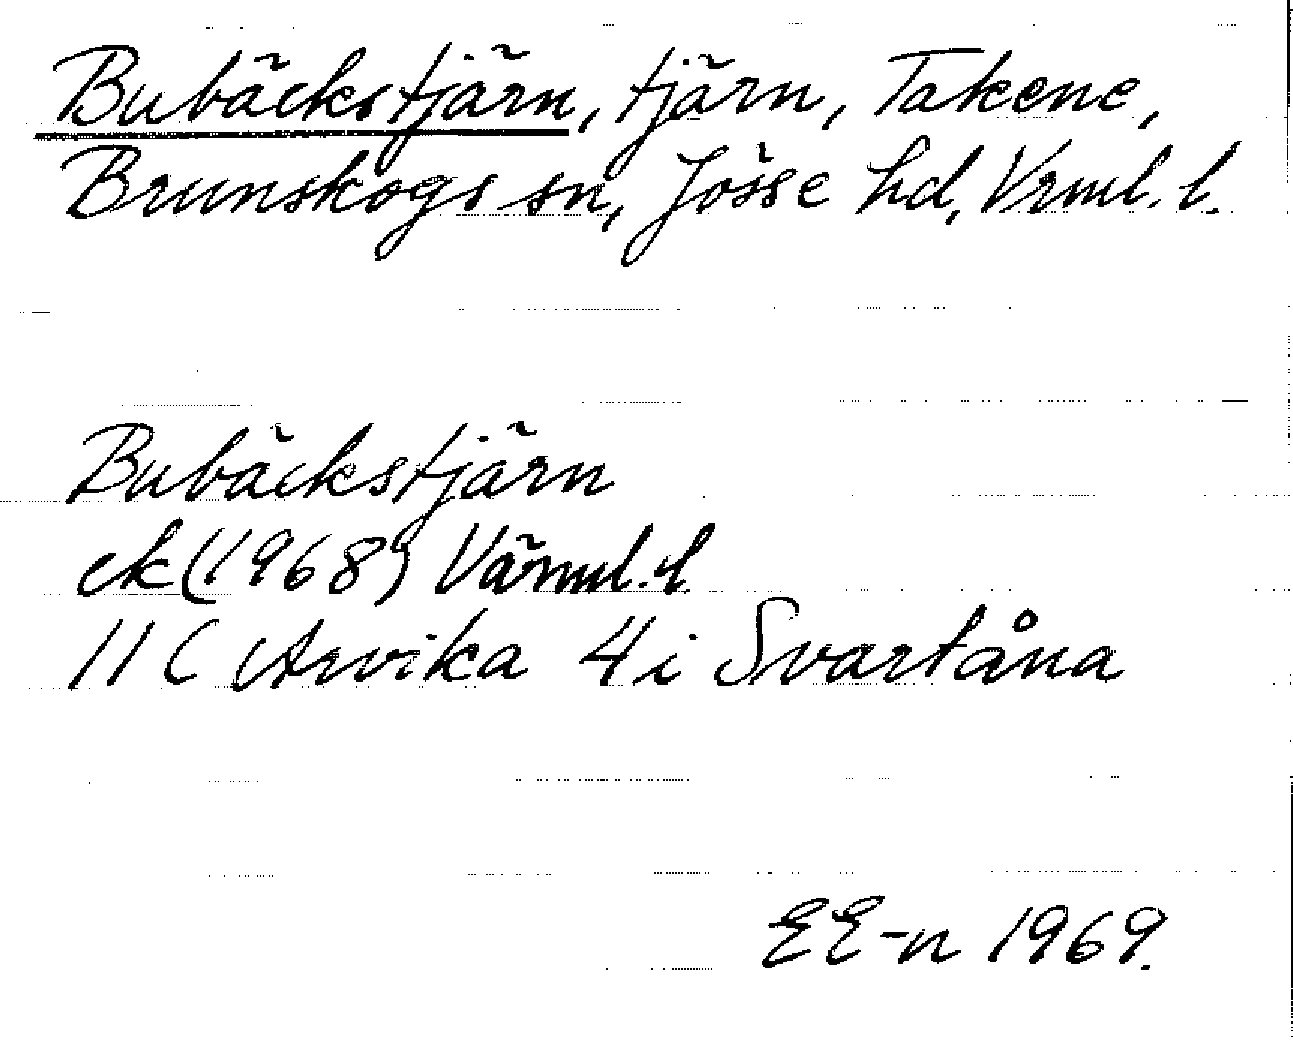 Bubäckstjärn, tjärn, Takene,
Brunskogs sn, Jösse hd, Vrml. l.
Bubäckstjärn
ek (1968) Värml. l
11 C Arvika 4 i Svartåna
EE-n 1969.